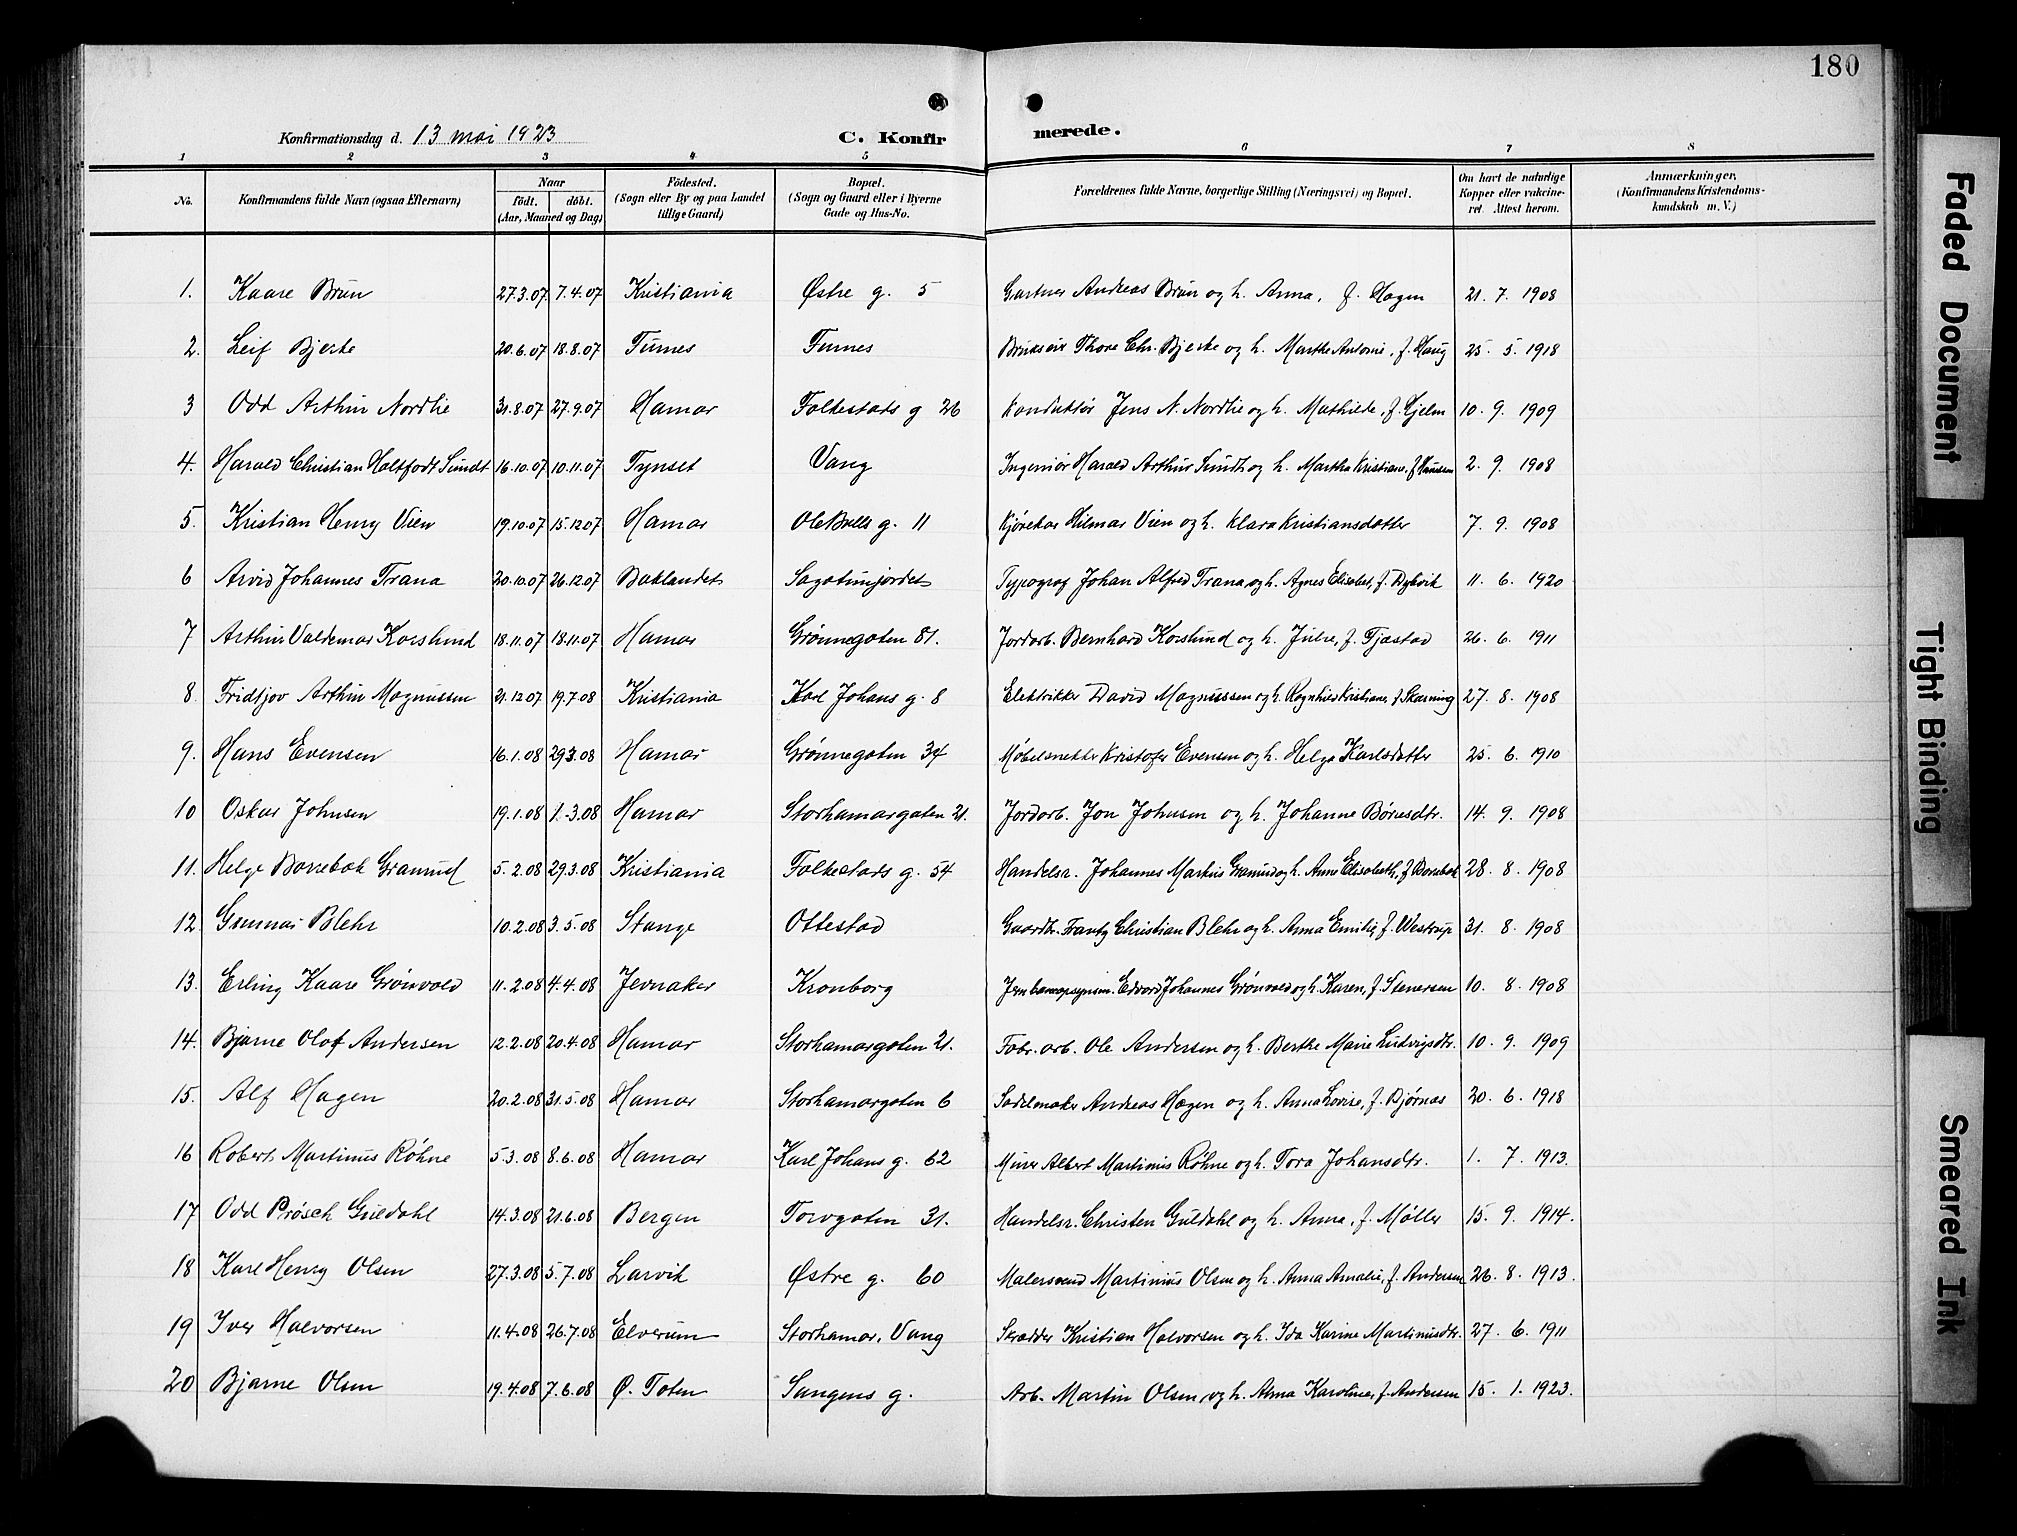 180
Konfirmationsdag d. 13 mai 1923 C. Konfirmerede.
1 2 3 4 5 6 7 8
No. Konfirmandens fulde Navn (ogsaa Efternavn) Naar født. døbt. (Aar, Maaned og Dag) Fødested. (Sogn eller By og paa Landet tillige Gaard) Bopæl. (Sogn og Gaard eller i Byerne Gade og Hus-No.) Forældrenes fulde Navne, borgerlige Stilling (Næringsvei) og Bopæl. Om havt de naturlige Kopper eller vakcineret. Attest herom. Anmærkninger. (Konfirmandens Kristendomskundskab m. V.)
1. Kaare Brun 27.3.07 7.4.07 Kristiania Østre g. 5 Gartner Andreas Brun og h. Anna, f. Hagen 21. 7. 1908
2. Leif Bjerke 20.6.07 18.8.07 Furnes Furnes Brukseier Thore Chr. Bjerke og h. Marthe Antonie, f. Haug 25. 5. 1918
3 Odd Arthur Nordlie 31.8.07 27.9.07 Hamar Folkestads g 26 Konduktør Jens N. Nordlie og h. Mathilde, f. Hjelm 10. 9. 1909
4. Harald Christian Holtfodt Sundt 16.10.07 10.11.07 Tynset Vang Ingeniør Harald Arthur Sundt og h. Martha Kristiane, f. Hansen 2. 9. 1908
5. Kristian Henry Vien 19.10.07 15.12.07 Hamar Ole Bulls g. 11 Kjørekar Hilmar Vien og h. Klara Kristiansdatter 7. 9. 1908
6 Arvid Johannes Trana 20.10.07 26.12.07 Baklandet Sagatunjordet Typograf Johan Alfred Trana og h. Agnes Elisabet, f. Dybvik 11. 6. 1920
7 Arthur Valdemar Korslund 18.11.07 18.11.07 Hamar Grønnegaten 81. Jordarb. Bernhard Korslund og h. Julie, f. Tjæstad 26. 6. 1911
8. Fridtjov Arthur Magnussen 21.12.07 19.7.08 Kristiania Karl Johans g. 8 Elektrikker David Magnussen og h. Ragnhild Kristiane, f. Skarning 27. 8. 1908
9. Hans Evensen 16.1.08 29.3.08 Hamar Grønnegaten 34 Møbelsnekker Kristofer Evensen og h. Helga Karlsdatter 25. 6. 1910
10 Oskar Johnsen 19.1.08 1.-3.08 Hamar Storhamargaten 21. Jordarb. Jon Johnsen og h. Johanne Børresdtr. 14. 9. 1908
11. Helge Borrebæk Granrud 5.2.08 29.3.08 Kristiania Folkestads g. 54 Handelsr. Johannes Markus Granrud og h. Anne Elisabeth, f. Borrebæk 28. 8. 1908
12. Gunnar Blehr 10.2.08 3.5.08 Stange Ottestad Gaardbr. Frantz Christian Blehr og h. Anna Emilie, f. Westrup 31. 8. 1908
13. Erling Kaare Grønvold 11.2.08 4.4.08 Jevnaker Kronborg Jernbaneopsynsm. Edvard Johannes Grønvold og h. Karen, f. Stenersen 10. 8. 1908
14. Bjarne Olaf Andersen 12.2.08 20.4.08 Hamar Storhamargaten 21. Fabr. arb. Ole Andersen og h. Berthe Marie Ludvigsdtr. 10. 9. 1909
15. Alf Hagen 20.2.08 31.5.08 Hamar Storhamargaten 6 Sadelmaker Andreas Hagen og h. Anna Lovise, f. Bjørnås 20. 6. 1918
16 Robert Martinus Røhne 5.3.08 8.6.08 Hamar Karl Johans g. 62 Murer Albert Martinius Røhne og h. Tora Johansdtr. 1. 7. 1913.
17 Odd Prøsch Guldahl 14.3.08 21.6.08 Bergen Torvgaten 31. Handelsr. Christen Guldahl og h. Anna, f. Møller 15. 9. 1914.
18 Karl Henry Olsen 27.3.08 5.7.08 Larvik Østre g. 60 Malersvend Martinius Olsen og h. Anna Amalie, f. Andersen 26. 8. 1913.
19 Iver Halvorsen 11.4.08 26.7.08 Elverum Storhamar, Vang Skrædder Kristian Halvorsen og h. Ida Karine Martinusdtr. 27. 6. 1911
20 Bjarne Olsen 19.4.08 7.6.08 Ø. Toten Sangens g. Arb. Martin Olsen og h. Anna Karoline, f. Andersen 15. 1. 1923.
Faded Document
Tight Binding
Smeared Ink